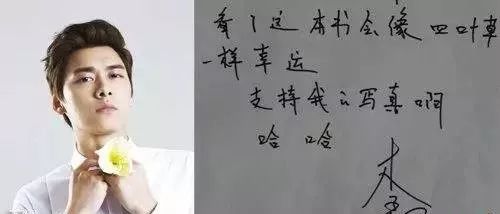 看了这本书会像四叶草
一样幸运
支持我的写真啊
哈哈